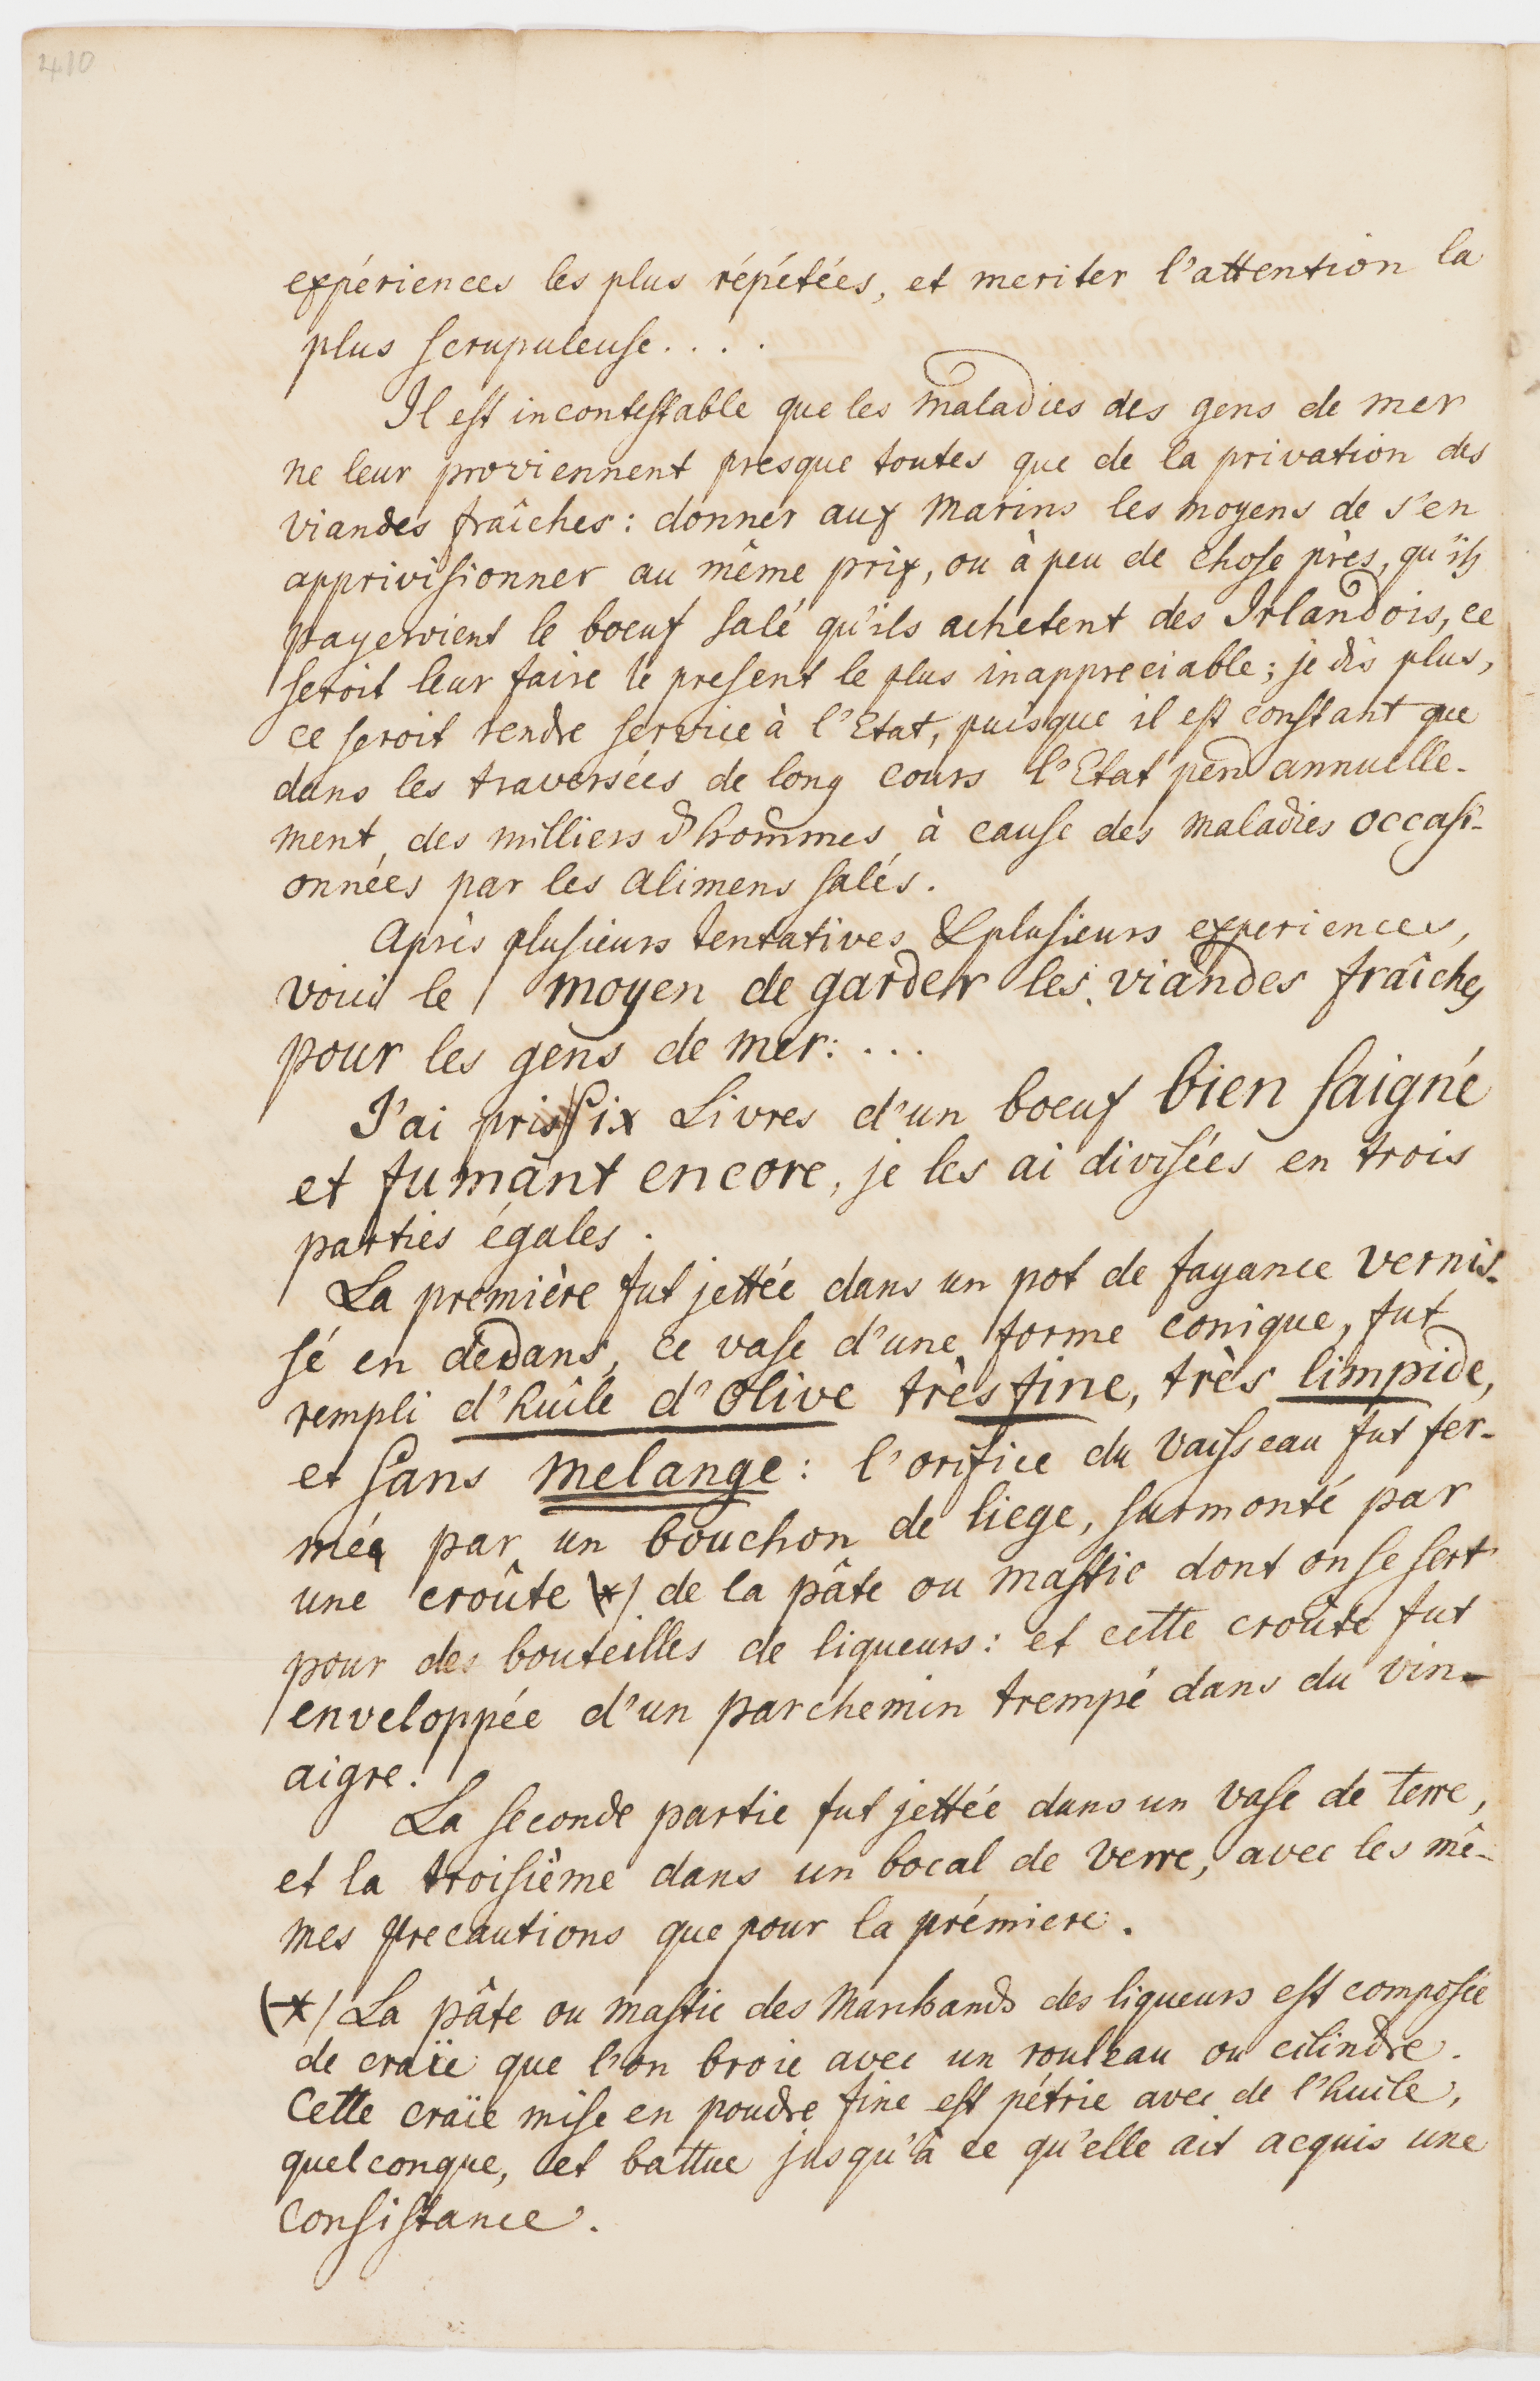 410
expériences les plus répétées, et meriter l'attention la
plus scrupuleuse. . . .
Il est incontestable que les maladies des gens de mer
ne leur proviennent presque toutes que de la privation des
viandes fraîches: donner aux Marins les moyens de s'en
apprivisionner au même prix, ou à peu de chose près, qu'ils
payeroient le boeuf salé qu'ils achetent des Irlandois, ce
seroit leur faire le present le plus inappreciable; je dis plus,
ce seroit rendre service à l'Etat, puisque il est constant que
dans les traversées de long cours l'Etat perd annuelle-
ment, des milliers d'hommes, à cause des maladies occasi-
onnées par les alimens salés.
Après plusieurs tentatives & plusieurs experiences,
voici le moyen de garder les viandes fraîches
pour les gens de mer: ...
J'ai pris six Livres d'un boeuf bien saigné
et fumant encore, je les ai divisées en trois
parties égales.
La première fut jettée dans un pot de fayance vernis-
sé en dedans, ce vase d'une forme conique, fut
rempli d'huile d'olive très fine, très limpide,
et sans melange: l'orifice du vaisseau fut fer-
mée par un bouchon de liege, surmonté par
une croûte (*) de la pâte ou mastic dont on se sert
pour des bouteilles de liqueurs: et cette croûte fut
enveloppée d'un parchemin trempé dans du vin-
aigre.
La seconde partie fut jettée dans un vase de terre,
et la troisième dans un bocal de verre, avec les mê-
mes precautions que pour la prémiere.
(*) La pâte ou mastic des Marchands des liqueurs est composée
de craïe que l'on broie avec un rouleau ou cilindre.
Cette craïe mise en poudre fine est pétrie avec de l'huile,
quelconque, et battue jusqu'à ce qu'elle ait acquis une
Consistance.